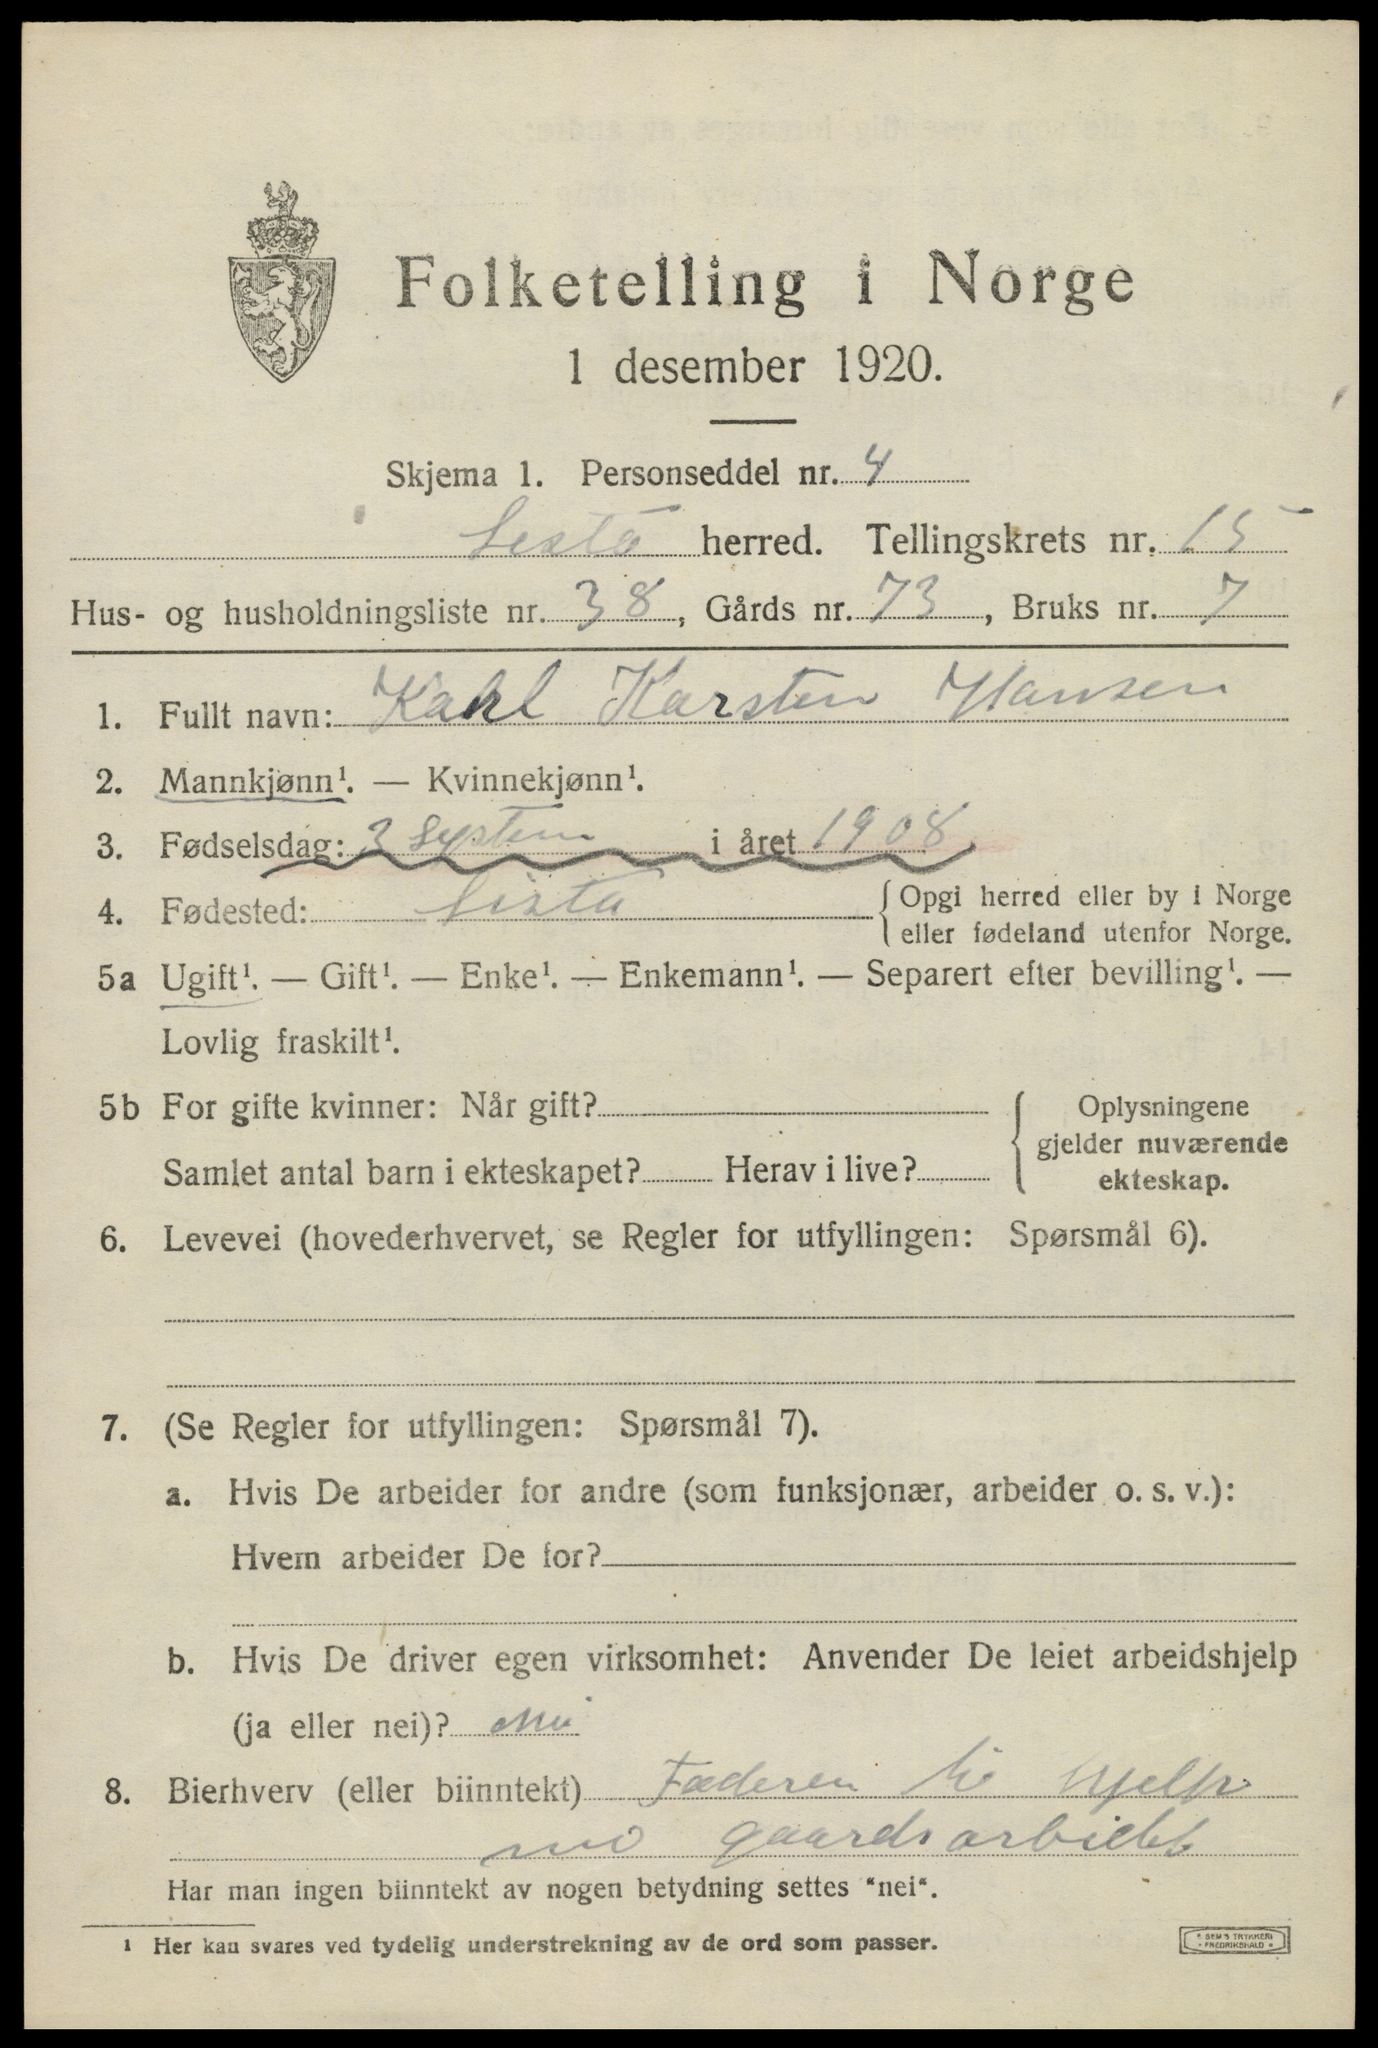 Folketelling i Norge
1 desember 1920.
Skjema 1. Personseddel nr. 4
Lista herred. Tellingskrets nr. 15
Hus- og husholdningsliste nr. 38, Gårds nr. 73, Bruks nr. 7
1. Fullt navn: Kahl Karsten Hansen
2. Mannkjønn¹. — Kvinnekjønn¹.
3. Fødselsdag: 3 Septem i året 1908
4. Fødested: Lista {Opgi herred eller by i Norge
eller fødeland utenfor Norge.
5a Ugift¹. — Gift¹. — Enke¹. — Enkemann¹. — Separert efter bevilling¹. —
Lovlig fraskilt¹.
5b For gifte kvinner: Når gift? { Oplysningene
gjelder nuværende
Samlet antal barn i ekteskapet? Herav i live?
ekteskap.
6. Levevei (hovederhvervet, se Regler for utfyllingen: Spørsmål 6).
7. (Se Regler for utfyllingen: Spørsmål 7).
a. Hvis De arbeider for andre (som funksjonær, arbeider o. s. v.):
Hvem arbeider De for?
b. Hvis De driver egen virksomhet: Anvender De leiet arbeidshjelp
(ja eller nei)? nei
8. Bierhverv (eller biinntekt) Faderen til Hjelp
gaards arbiet
Har man ingen biinntekt av nogen betydning settes “nei“.
¹ Her kan svares ved tydelig understrekning av de ord som passer.
SEM'S TRYKKERI
FREDRIKSHALD